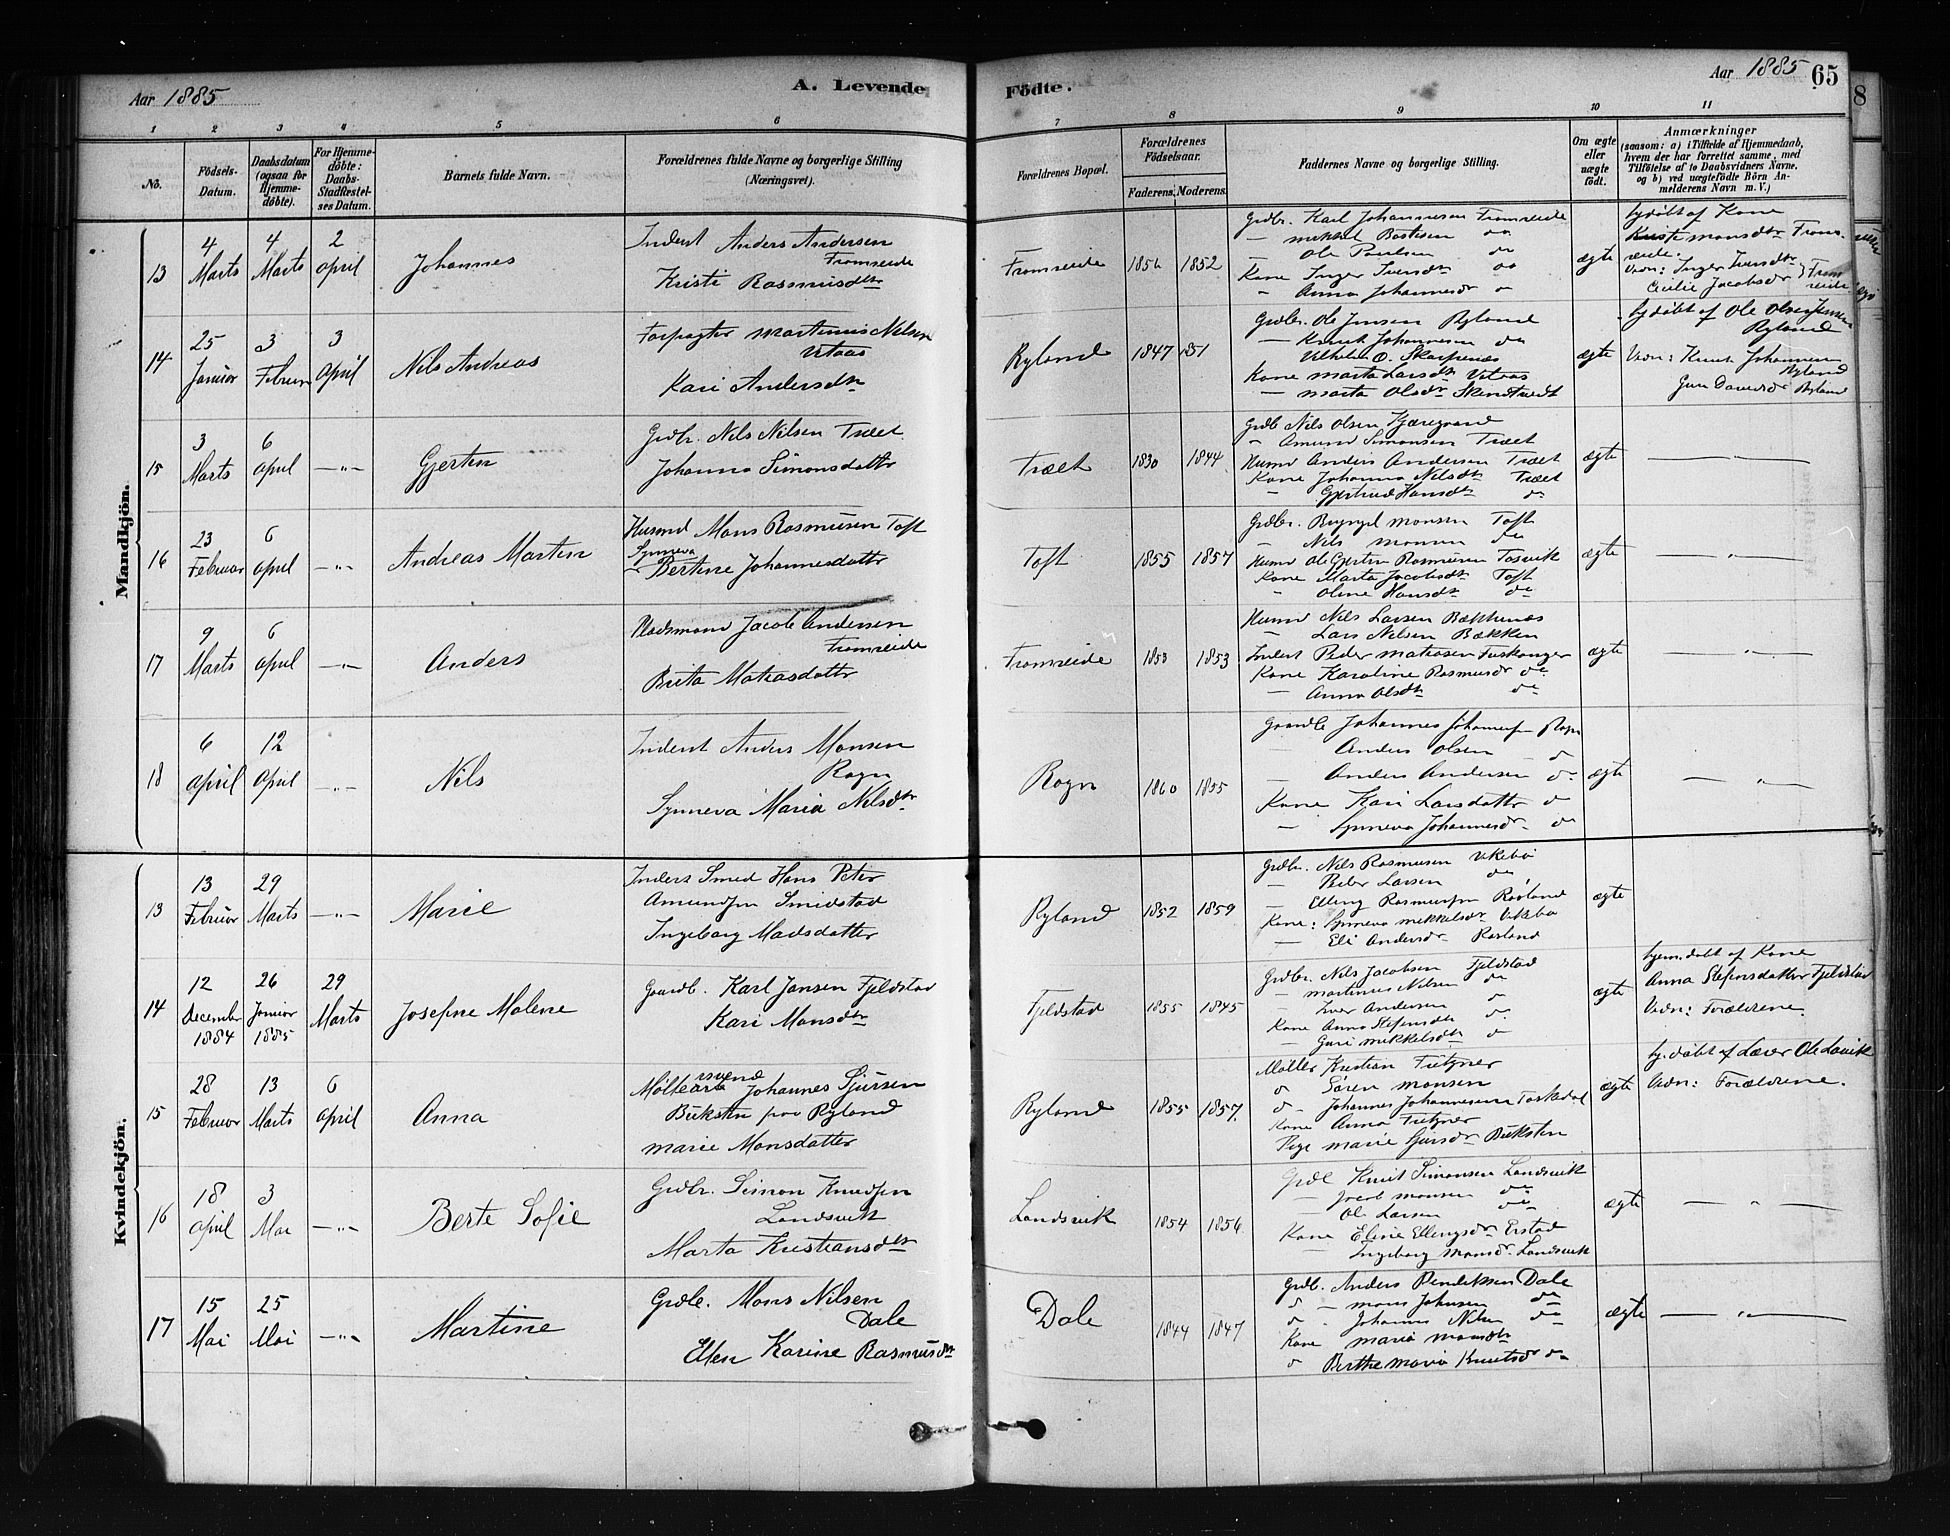 Aar 1885
A. Levende
Födte.
Aar 1885
65
1 2 3 4 5 6 7 8 9 10 11
No.
Födsels-Datum.
Daabsdatum (ogsaa for Hjemme-döbte).
For Hjemme-döbte: Daabs-Stadfæstel-ses Datum.
Barnets fulde Navn.
Forældrenes fulde Navne og borgerlige Stilling (Næringsvei).
Forældrenes Bopæl.
Forældrenes Födselsaar.
Faderens. Moderens.
Faddernes Navne og borgerlige Stilling.
Om ægte eller uægte födt.
Anmærkninger
(saasom: a) i Tilfælde af Hjemmedaab, hvem der har forrettet samme, med Tilföielse af to Daabsvidners Navne, og b) ved uægtefödte Börn An-melderens Navn m. V.)
Mandkjön.
13
4 Marts
4 Marts
2 April
Johannes
Inderst Anders Andersen
Fromreide
Kristi Rasmusdtr
Fromreide
1856 1852
Grdbr. Karl Johannesen Fromreide
— Mikkel Bastesen do
— Ole Paulsen do
Kone Inger Iversdtr do
— Anna Johannesdr do
ægte
hj.döbt af Kone
Kriste Monsdtr From-
reide.
Vidn: Inger Iversdtr
Cecilie Jacobsdr } From
reide.
14
25 Januar
3 Februar
3 April
Nils Andreas
Forpagter Martinus Nilsen
Vetaas
Kari Andersdtr
Ryland
1847 1851
Grdbr. Ole Jensen Ryland
— Knut Johannesen do
Vilhelm O. Skarpenæs
Kone Marta Larsdtr Vetaas
— Marta Olsdtr
ægte
hj.döbt af Ole Olsen
Ryland
Vidn: Knut Johannesen
Ryland
Ryland
15
3 Marts
6 April
— „ —
Gjertin
Grdbr. Nils Nilsen Træet
Johanna Simonsdattr
Træet
1830 1844
Grdb Nils Olsen Kjæregaard
„ Amund Simonsen Træet
Husmd Anders Andersen Træet
Kone Johanna Nilsdtr Træet
— Gjertrud Hansdtr do
ægte
— „ —
16
23 Februar
6 April
— „ —
Andreas Martin
Husmd Mons Rasmusen Toft
Synneva
Bertine Johannesdattr
Toft
1855 1857
Grdbr. Brynjel Monsen Toft
— Nils Monsen do
Husmd Ole Gjertin Rasmusen Tosvik
Kone Marta Jacobsdtr Toft
— Oline Hansdtr do
ægte
— „ —
17
9 Marts
6 April
— „ —
Anders
Pladsmand Jacob Andersen
Fromreide
Brita Matiasdattr
Fromreide
1853 1853
Husmd Nils Larsen Bækkenæs
— Lars Nilsen Bækken
Inderst Peder Matiasen Fuskanger
Kone Karoline Rasmusdr do
— Anna Olsdtr do
ægte
— „ —
18
6 April
12 April
— „ —
Nils
Inderst Anders Monsen
Rogn
Synneva Maria Nilsdtr
Rogn
1860 1855
Gaardb Johannes Johannesen Rogn
— Anders Olsen do
— Anders Andersen do
Kone Kari Larsdattr do
— Synneva Johannesdr do
ægte
— „ —
Kvindekjön.
13
13 Februar
29 Marts
— „ —
Marie
Inders Smed Hans Peter
Amundsen Smidstad
Ingeborg Madsdatter
Ryland
1852 1859
Grdbr. Nils Rasmusen Vikebö
— Peder Larsen do
— Elling Rasmussen Røsland
Kone: Synneva Mikkelsdr Vikebö
— Eli Andersdr Røsland
ægte
14
12 December 1884
26 Januar 1885
29 Marts
Josefine Malene
Gaardb. Karl Jansen Fjeldstad
Kari Monsdtr
Fjeldstad
1855 1845
Grdbr. Nils Jacobsen Fjeldstad
— Martinus Nilsen do
— Iver Andersen do
Kone Anna Stefensdtr do
— Guri Mikkelsdtr do
ægte
hjem.döbt af Kone
Anna Stefensdatter Fjeldstad
Vidn: Forældrene.
15
28 Februar
13 Marts
6 April
Anna
Möllersvend Johannes Sjursen
Buksten paa Ryland
Marie Monsdatter
Ryland
1855 1857
Möller Kristian Titgner
do Sören Monsen
do - Johannes Johannesen Torskedal
Kone Anna Titgner
Pige Marie Sjursdr Buksten
ægte
hj.döbt af Lærer Ole Lavik
Vidn: Forældrene.
16
18 April
3 Mai
— „ —
Berte Sofie
Grdbr. Simon Knudsen
Landsvik
Marta Kristiansdtr
Landsvik
1854 1856
Grdb Knut Simonsen Landsvik
— Jacob Monsen do
— Ole Larsen do
Kone Eline Ellingsdr Erstad
— Ingeborg Monsdr Landsvik
ægte
— „ —
17
15 Mai
25 Mai
— „ —
Martine
Grdb. Mons Nilsen
Dale
Ellen Karine Rasmusdtr
Dale
1844 1847
Grdb. Anders Bendiksen Dale
do — Mons Johnsen do
do - Johannes Nilsen do
Kone Maria Monsdtr
do Berthe Maria Knutsdr do
ægte
— „ —